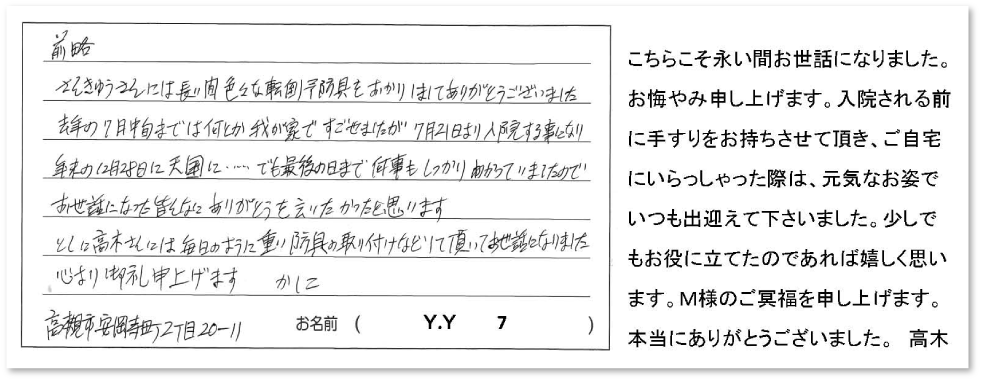 前略
さんきゅうさんには長い間色々な転倒予防具をおかりしましてありがとうございました
去年の7月中旬までは何とか我が家ですごせましたが 7月21日より入院する事になり
年末の12月28日に天国に……でも最後の日まで何事もしっかりわかっていましたので
お世話になった皆さんにありがとうを言いたかったと思います
とくに高木さんには毎日のように重い防具の取り付けなどして頂いてお世話になりました
心より御礼申上げます かしこ
高槻市安岡寺町2丁目20-11 お名前 ( Y.Y 7 )
こちらこそ永い間お世話になりました。
お悔やみ申し上げます。入院される前
に手すりをお持ちさせて頂き、ご自宅
にいらっしゃった際は、元気なお姿で
いつも出迎えて下さいました。少しで
もお役に立てたのであれば嬉しく思い
ます。M様のご冥福を申し上げます。
本当にありがとうございました。 高木